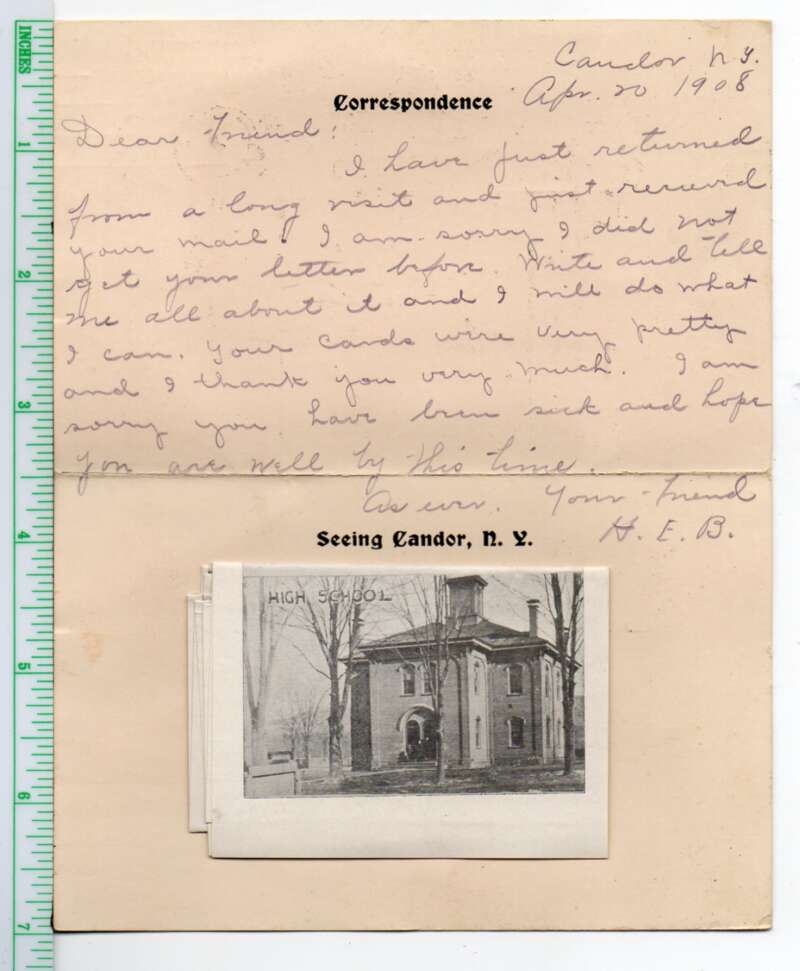 Candor N.Y.
Correspondence
Apr. 20 1908
Dear Friend:
I have just returned
from a long visit and just received
your mail. I am sorry I did not
get your letter before. Write and tell
me all about it and I will do what
I can. Your cards were very pretty
and I thank you very much. I am
sorry you have been sick and hope
you are well by this time.
As ever. Your friend
H. E. B.
Seeing Candor, N. Y.
HIGH SCHOOL
INCHES
1
2
3
4
5
6
7